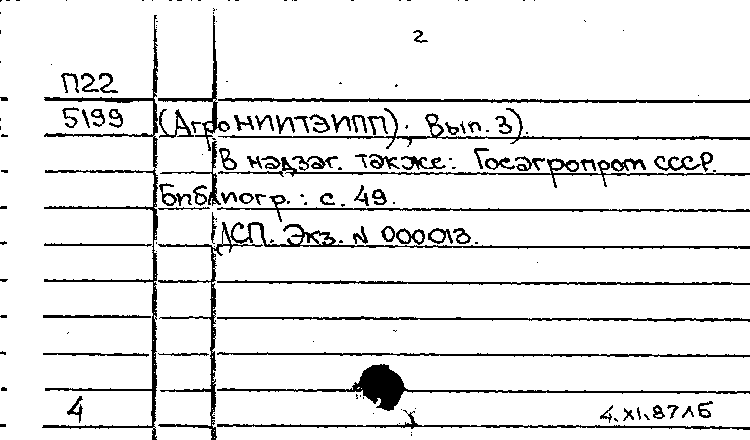 2
П22
5199 (АгроНИИТЭИПП); Вып. 3).
В надзаг. также: Госагропром СССР.
Библиогр.: с. 49.
ДСП. Экз. N 000013.
4 4.XI.87ЛБ